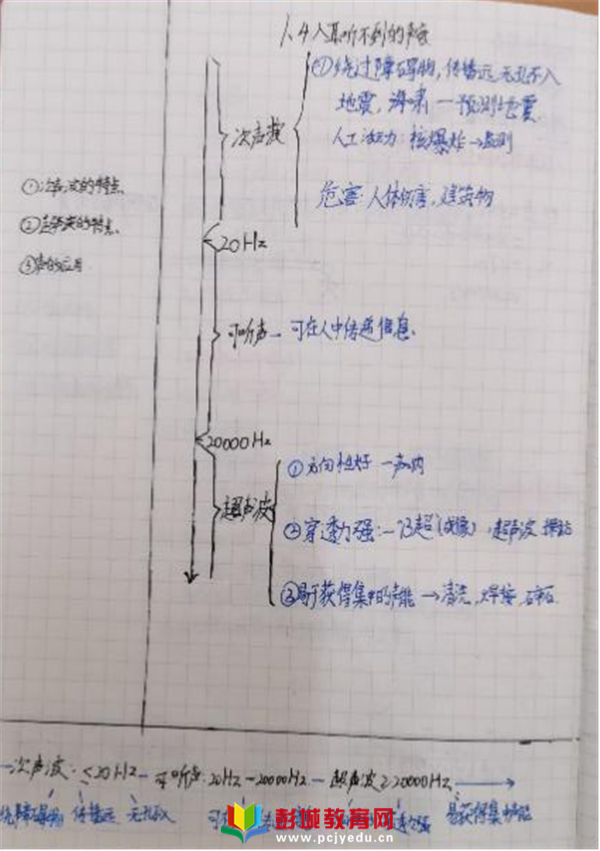 1.4人耳听不到的声音
①绕过障碍物，传播远，无孔不入
地震，海啸—预测地震
次声波
人工活动力：核爆炸→监测
危害：人体伤害，建筑物
①次声波的特点
②超声波的特点
③声的应用
20Hz
可听声—可在人中传递信息
20000Hz
①方向性好—声呐
超声波
②穿透力强：—B超(成像)，超声波探
③易于获得集中的声能→清洗，焊接，碎石
次声波：<20Hz—可听声：20Hz—20000Hz—超声波≥20000Hz
绕障碍物 传播远 无孔不入 可 易获得集中声能
彭城教育网
www.pcjyedu.cn